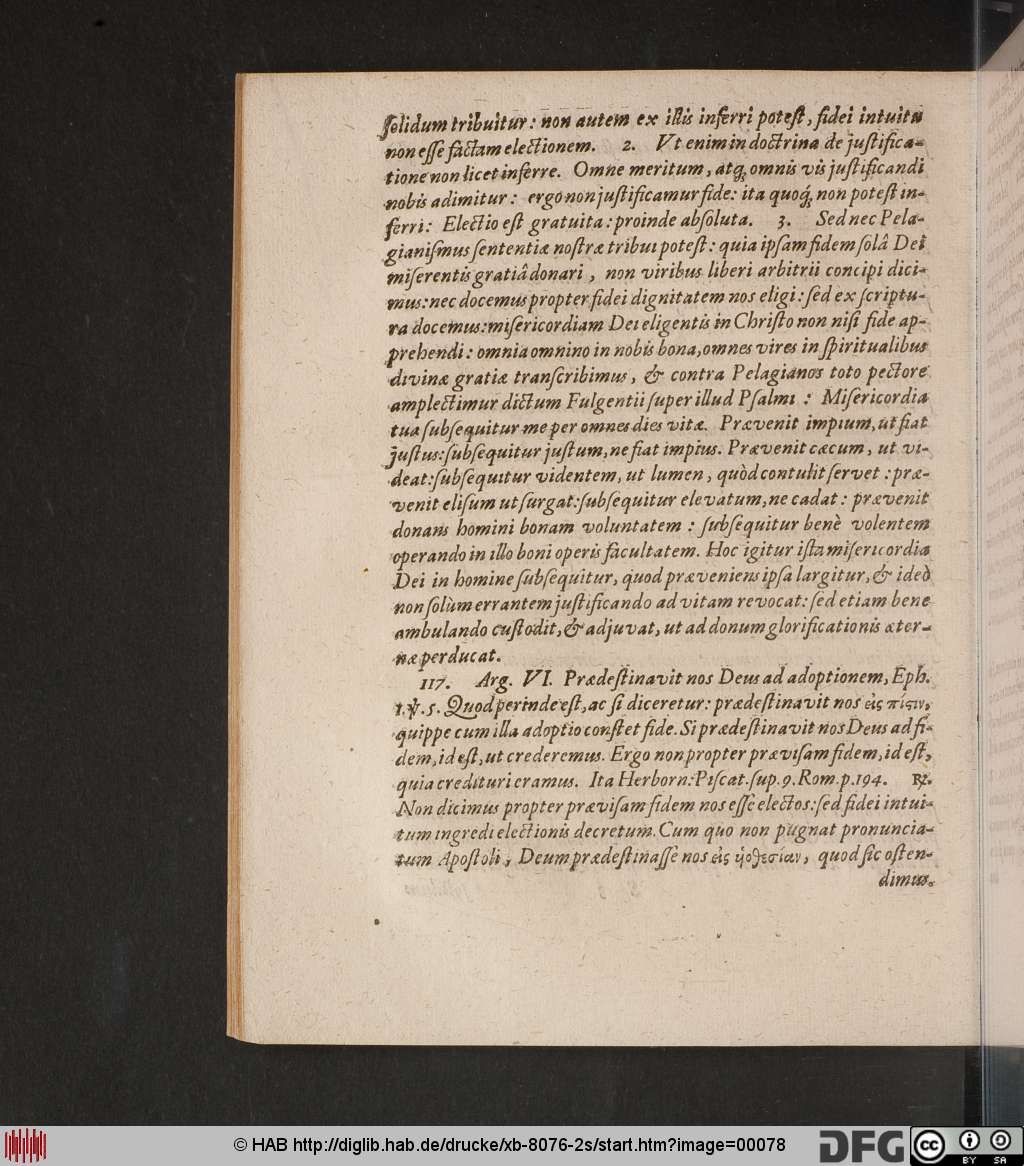 ſolidum tribuitur: non autem ex illis inferri poteſt, fidei intuitu
non eſſe factam electionem. 2. Vt enim in doctrina de juſtifica-
tione non licet inferre. Omne meritum, atq́; omnis vis juſtificandi
nobis adimitur: ergo non juſtificamur fide: ita quoq́; non poteſt in-
ferri: Electio eſt gratuita: proinde abſoluta. 3. Sed nec Pela-
gianiſmus ſententiæ noſtræ tribui poteſt: quia ipſam fidem ſolâ Dei
miſerentis gratiâ donari, non viribus liberi arbitrii concipi dici-
mus: nec docemus propter fidei dignitatem nos eligi: ſed ex ſcriptu-
ra docemus: miſericordiam Dei eligentis in Chriſto non niſi fide ap-
prehendi: omnia omnino in nobis bona, omnes vires in ſpiritualibus
divinæ gratiæ tranſcribimus, & contra Pelagianos toto pectore
amplectimur dictum Fulgentii ſuper illud Pſalmi: Miſericordia
tua ſubſequitur me per omnes dies vitæ. Prævenit impium, ut fiat
juſtus: ſubſequitur juſtum, ne fiat impius. Prævenit cæcum, ut vi-
deat: ſubſequitur videntem, ut lumen, quòd contulit ſervet: præ-
venit eliſum ut ſurgat: ſubſequitur elevatum, ne cadat: prævenit
donans homini bonam voluntatem: ſubſequitur benè volentem
operando in illo boni operis facultatem. Hoc igitur iſta miſericordia
Dei in homine ſubſequitur, quod præveniens ipſa largitur, & ideò
non ſolùm errantem juſtificando ad vitam revocat: ſed etiam bene
ambulando cuſtodit, & adjuvat, ut ad donum glorificationis æter-
næ perducat.
117. Arg. VI. Prædeſtinavit nos Deus ad adoptionem, Eph.
1. ℣. 5. Quod perinde eſt, ac ſi diceretur: prædeſtinavit nos εἰς πίςιν,
quippe cum illa adoptio conſtet fide. Si prædeſtinavit nos Deus ad fi-
dem, id eſt, ut crederemus. Ergo non propter præviſam fidem, id eſt,
quia credituri eramus. Ita Herborn: Piſcat. ſup. 9. Rom. p. 194. ℞.
Non dicimus propter præviſam fidem nos eſſe electos: ſed fidei intui-
tum ingredi electionis decretum. Cum quo non pugnat pronuncia-
tum Apoſtoli, Deum prædeſtinaſſe nos εἰς ὑοθεσίαν, quod ſic oſten-
dimus.
© HAB http://diglib.hab.de/drucke/xb-8076-2s/start.htm?image=00078
DFG
cc
BY SA